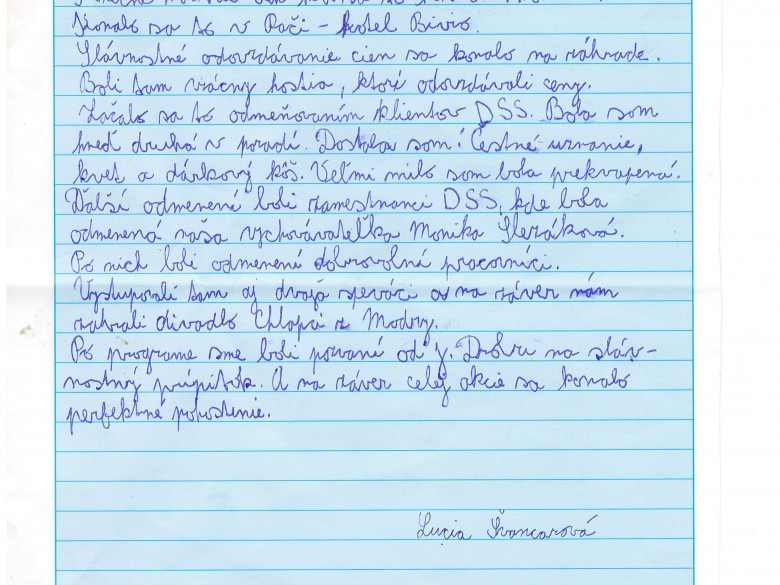 Konalo sa to v Rači - hotel Bivio.
Slávnostné odovzdávanie cien sa konalo na záhrade.
Boli tam vzácny hostia, ktorí odovzdávali ceny.
Začalo sa to odmeňovaním klientov DSS. Bola som
hneď druhá v poradí. Dostala som: Čestné uznanie,
kvet a dárkový kôš. Veľmi milo som bola prekvapená.
Ďalší odmenení boli zamestnanci DSS, kde bola
odmenená naša vychovávateľka Monika Slezáková.
Po nich boli odmenení dobrovolná pracovníci.
Vystupovali tam aj dvaja speváci a na záver nám
zahrali divadlo Chlapá z Modry.
Po programe sme boli pozvané od J. Drobu na sláv-
nostný prípitok. A na záver celej akcie sa konalo
perfektné pohostenie.
Lucia Švancarová